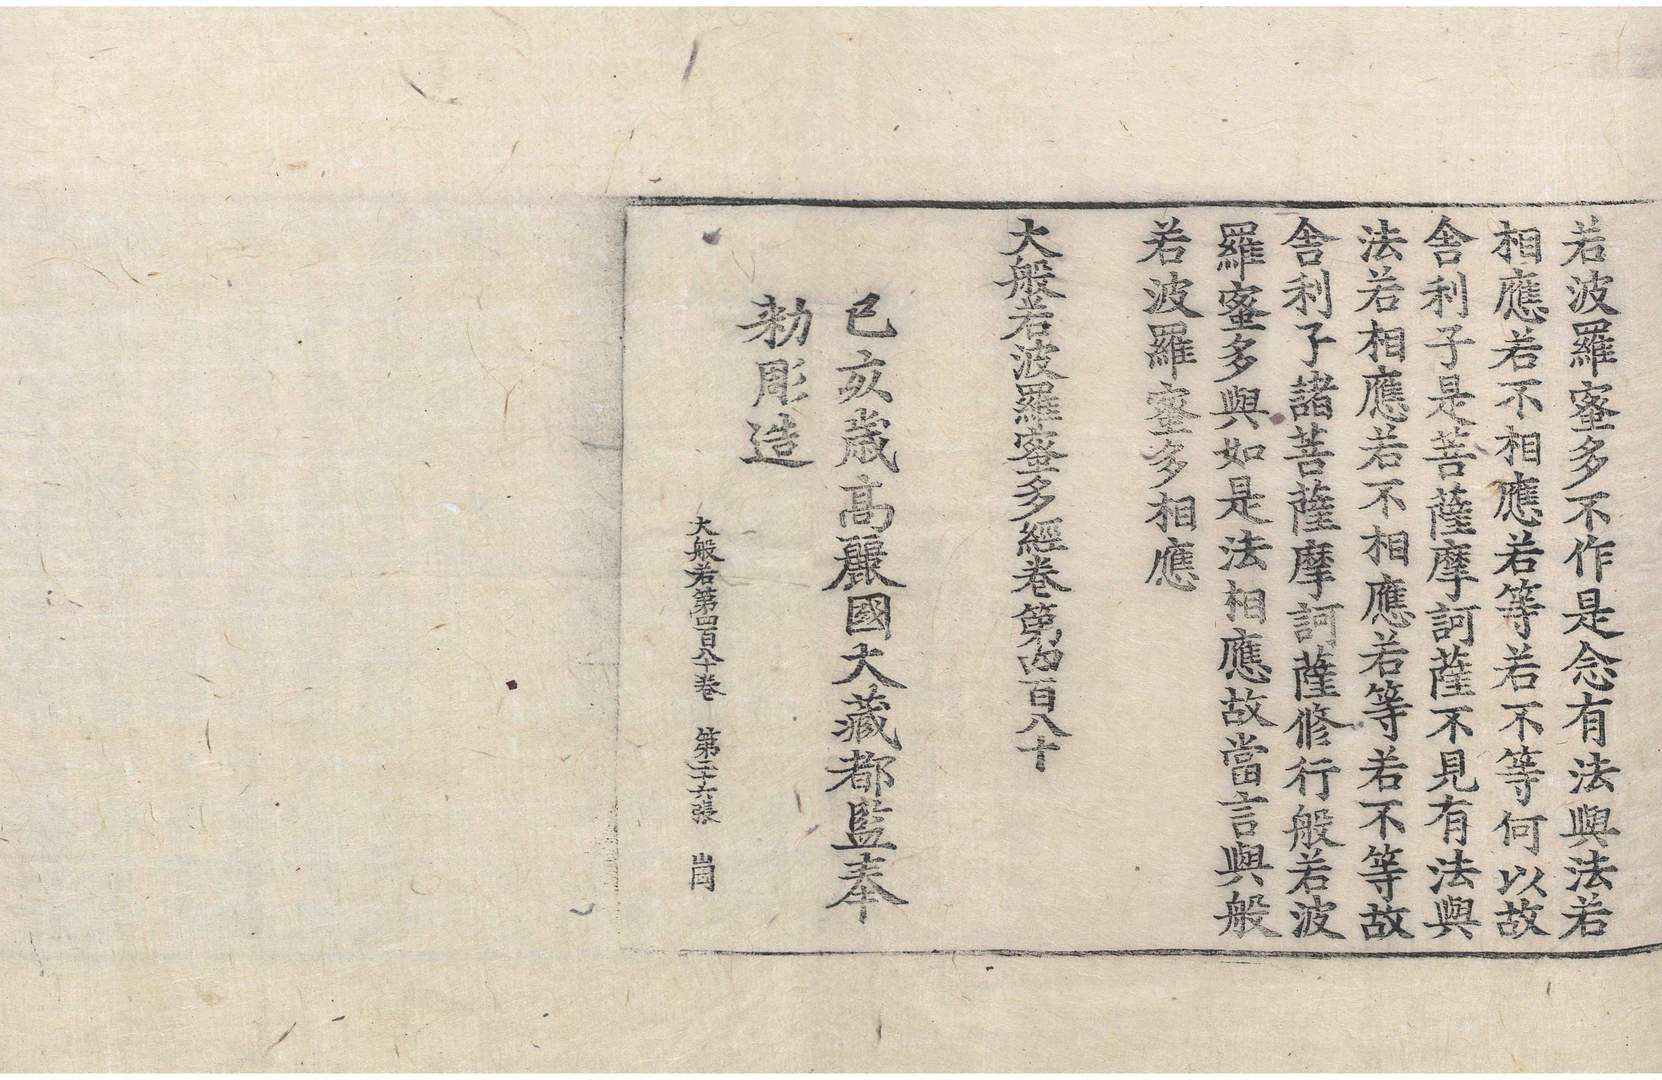 若波羅蜜多不作是念有法與法若
相應若不相應若等若不等何以故
舍利子是菩薩摩訶薩不見有法與
法若相應若不相應若等若不等故
舍利子諸菩薩摩訶薩修行般若波
羅蜜多與如是法相應故當言與般
若波羅蜜多相應
大般若波羅蜜多經卷第四百八十
己亥歲高麗國大藏都監奉
勑彫造
大般若第四百八十卷　第二十六張　岗